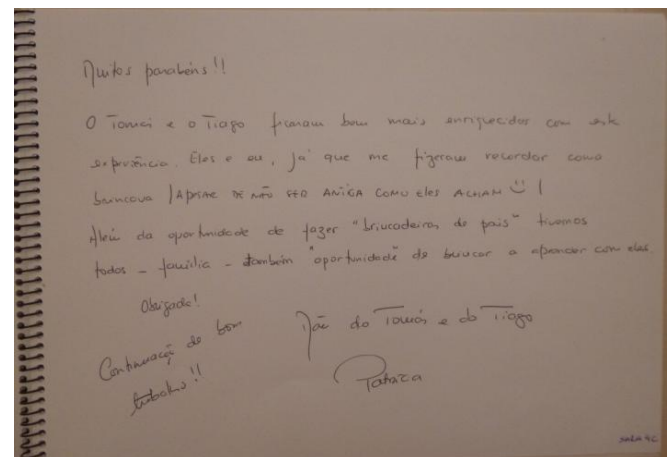 Muitos parabéns!!
O Tomás e o Tiago ficaram bem mais enriquecidos com esta
experiência. Eles e eu, já que me fizeram recordar como
brincava (APESAR DE NÃO SER ANTIGA COMO eles ACHAM)
Além da oportunidade de fazer "brincadeiras de pais" tivemos
todos - família - também "oportunidade" de brincar e aprender com eles.
Obrigada!
Continuação de bom
trabalho!!
Mãe do Tomás e do Tiago
Patrícia
sala 4C